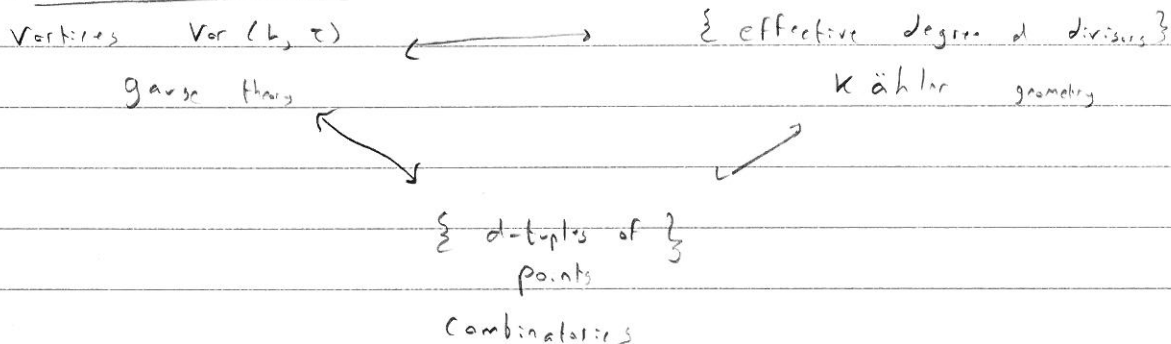 Vortices Vor (L, τ) { effective degree d divisors }
gauge theory Kähler geometry
{ d-tuples of }
points
Combinatorics